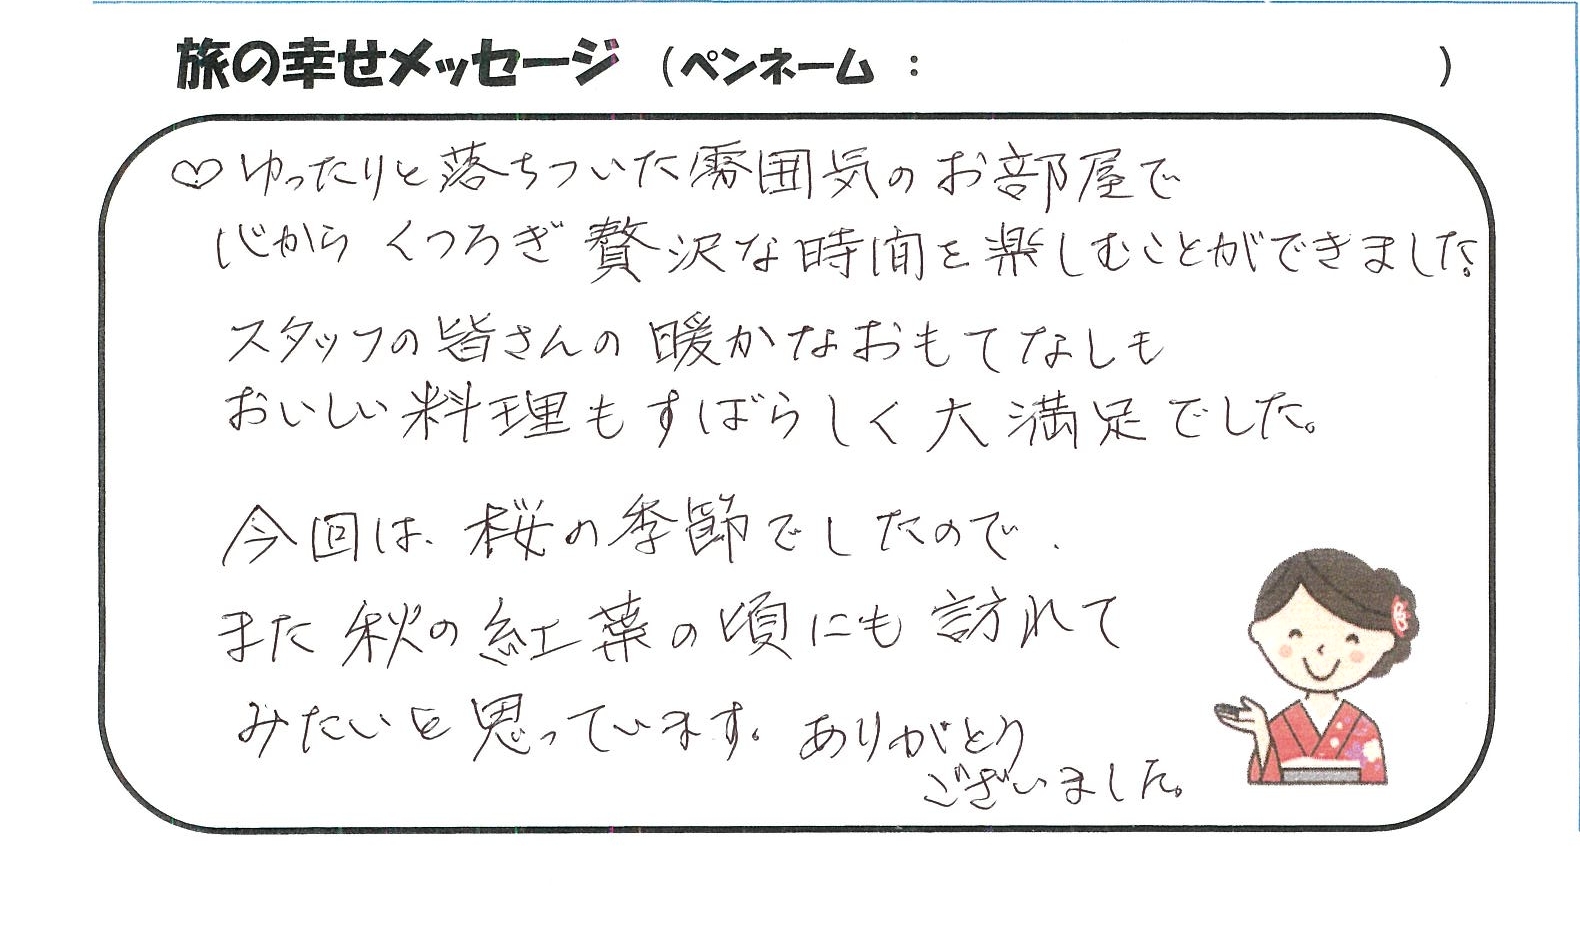 旅の幸せメッセージ （ペンネーム ： ）
♡ゆったりと落ちついた雰囲気のお部屋で
心から くつろぎ 贅沢な時間を楽しむことができました。
スタッフの皆さんの暖かなおもてなしも
おいしい料理もすばらしく大満足でした。
今回は、桜の季節でしたので、
また秋の紅葉の頃にも訪れて
みたいと思っています。ありがとう
ございました。